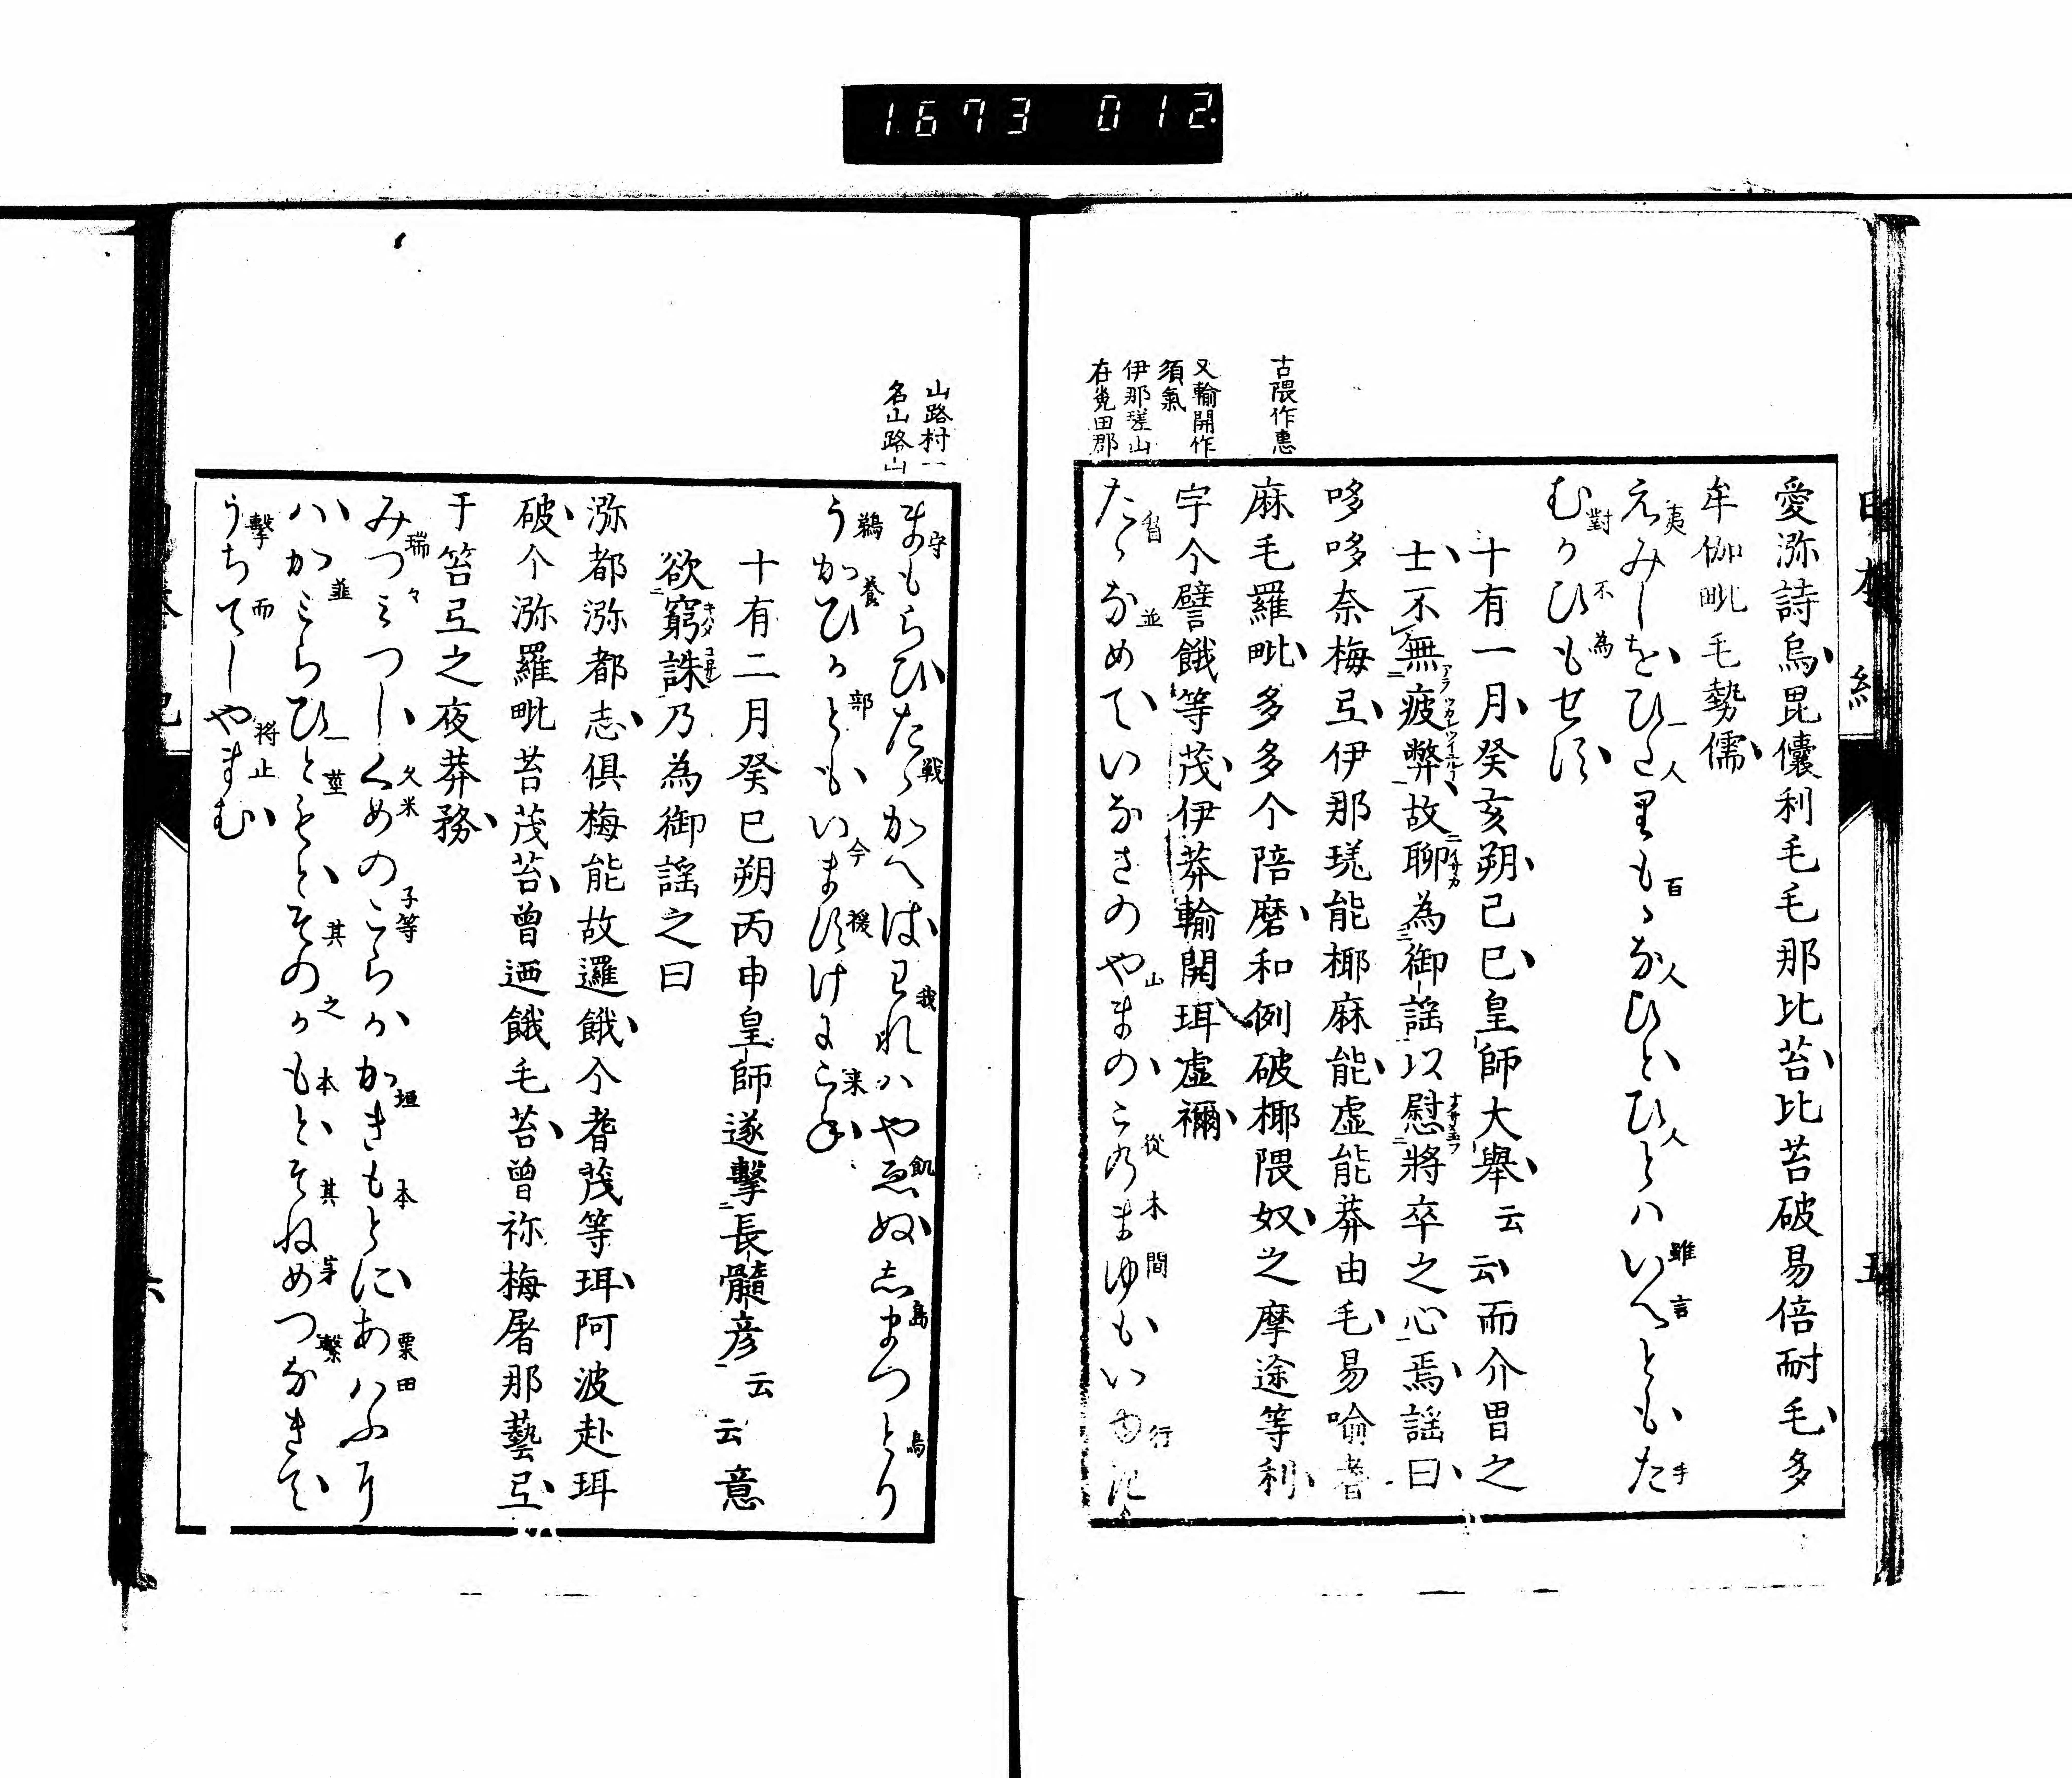 1673 012
愛瀰詩烏毘儴利毛毛那比苔比苔破易倍耐毛多
牟伽毗毛勢儒
えみしをひたりもゝなひとひとハいへともた
夷 一人 百 人 人 雖言 手
むかひもせす
對 不為
十有一月癸亥朔己巳皇師大舉云云而介冑之
士不無疲弊故聊為御謡以慰將卒之心焉謡曰
哆哆奈梅弖伊那瑳能椰麻能虛能莽由毛易喻耆
麻毛羅毗多多介陪磨和例破椰隈奴之摩途等利
宇介譬餓等茂伊莽輸開珥虛禰
たゝなめていなさのやまのこのまゆもいゆき
楯 並 山 從 木間 行
古隈作惠
又輸開作
須氣
伊那瑳山
在菟田郡
山路村一
名山路山
まもらひたゝかへはわれハやゑぬしまつとり
守 戦 我 飢 島 鳥
うかひかともいますけにこね
鵜養 部 今 援 来
十有二月癸巳朔丙申皇師遂擊長髄彦云云意
欲窮誅乃為御謡之曰
瀰都瀰都志倶梅能故邏餓介耆茂等珥阿波赴珥
破介瀰羅毗苔茂苔曾廼餓毛苔曾祢梅屠那藝弖
于笞弖之夜莽務
みつみつしくめのこらかかきもとにあハふに
瑞々 久米 子等 垣 本 粟田
ハかみらひともとそのかもとそねめつなきて
韮 一莖 其 之 本 其 芽 繫
うちてしやまむ
擊 而 将止